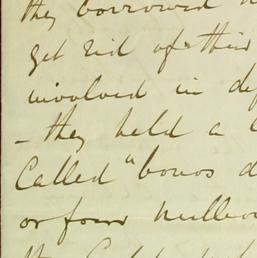 they borrowed
get rid of their
involved in de
– they held a
Called "bonos d
or four million